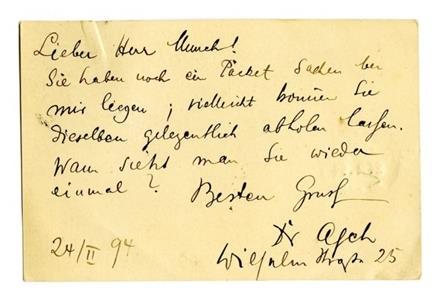 Lieber Herr Munch!
Sie haben noch ein Packet Sachen bei
mir liegen; vielleicht können Sie
dieselben gelegentlich abholen lassen.
Wann sieht man Sie wieder
einmal? Besten Gruß
Dr Asch
24/II 94 Wilhelm Straße 25